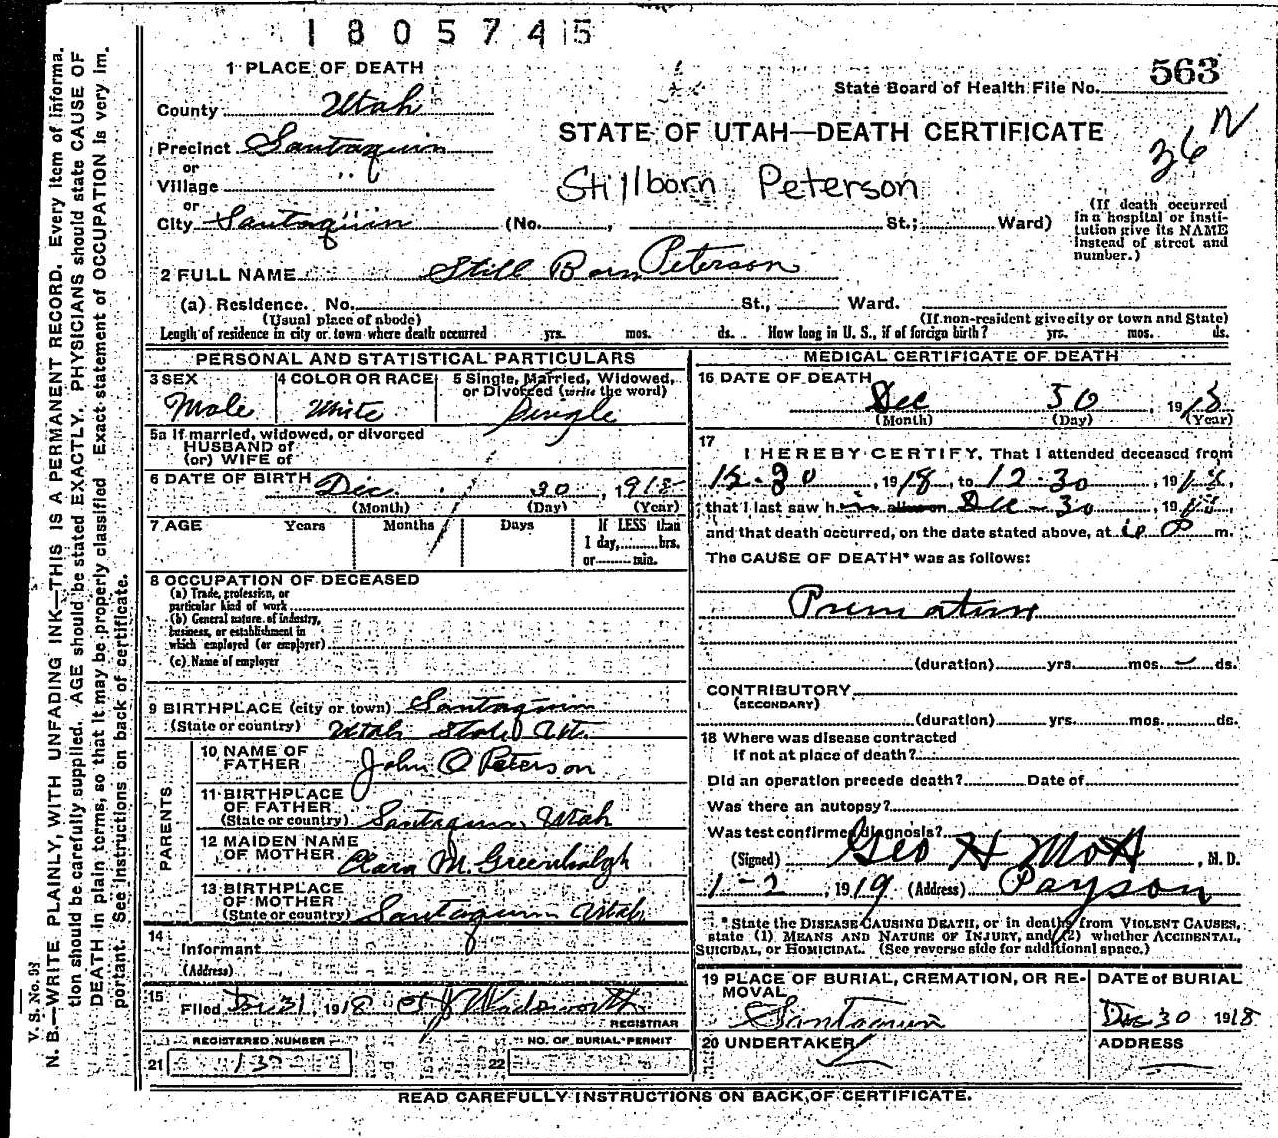 1805745
1 PLACE OF DEATH
State Board of Health File No. 563
County Utah
36 N
STATE OF UTAH—DEATH CERTIFICATE
Precinct Santaquin
or
Village "
Stillborn Peterson
or
City Santaquin (No. , St.; Ward)
(If death occurred in a hospital or institution give its NAME instead of street and number.)
2 FULL NAME Still Born Peterson
(a) Residence. No. St., Ward.
(Usual place of abode) (If non-resident give city or town and State)
Length of residence in city or town where death occurred yrs. mos. ds. How long in U. S., if of foreign birth? yrs. mos. ds.
PERSONAL AND STATISTICAL PARTICULARS
3 SEX 4 COLOR OR RACE 5 Single, Married, Widowed, or Divorced (write the word)
Male White Single
5a If married, widowed, or divorced
HUSBAND of
(or) WIFE of
6 DATE OF BIRTH Dec. 30, 1918
(Month) (Day) (Year)
7 AGE Years Months Days If LESS than
1 day, hrs.
or min.
8 OCCUPATION OF DECEASED
(a) Trade, profession, or
particular kind of work
(b) General nature of industry,
business, or establishment in
which employed (or employer)
(c) Name of employer
9 BIRTHPLACE (city or town) Santaquin
(State or country) Utah State
PARENTS
10 NAME OF FATHER John O Peterson
11 BIRTHPLACE OF FATHER
(State or country) Santaquin Utah
12 MAIDEN NAME OF MOTHER Clara M. Greenhalgh
13 BIRTHPLACE OF MOTHER
(State or country) Santaquin Utah
14
Informant
(Address)
15
Filed Dec 31, 1918 Wadsworth
REGISTRAR
REGISTERED NUMBER NO. OF BURIAL PERMIT
21 22
MEDICAL CERTIFICATE OF DEATH
16 DATE OF DEATH
Dec 30, 1918
(Month) (Day) (Year)
17
I HEREBY CERTIFY, That I attended deceased from
12-30, 1918, to 12-30, 1918,
that I last saw h im alive on Dec-30, 1918,
and that death occurred, on the date stated above, at P m.
The CAUSE OF DEATH* was as follows:
Premature
(duration) yrs. mos. ds.
CONTRIBUTORY
(SECONDARY)
(duration) yrs. mos. ds.
18 Where was disease contracted
If not at place of death?
Did an operation precede death? Date of
Was there an autopsy?
Was test confirmed diagnosis?
(Signed) Geo H Mott, M. D.
1-2, 1919 (Address) Payson
*State the DISEASE CAUSING DEATH, or in deaths from VIOLENT CAUSES,
state (1) MEANS AND NATURE OF INJURY, and (2) whether ACCIDENTAL,
SUICIDAL, or HOMICIDAL. (See reverse side for additional space.)
19 PLACE OF BURIAL, CREMATION, OR REMOVAL DATE of BURIAL
Santaquin Dec 30 1918
20 UNDERTAKER ADDRESS
READ CAREFULLY INSTRUCTIONS ON BACK OF CERTIFICATE.
V. S. No. 93
N. B.—WRITE PLAINLY, WITH UNFADING INK—THIS IS A PERMANENT RECORD. Every item of informa-
tion should be carefully supplied. AGE should be stated EXACTLY. PHYSICIANS should state CAUSE OF
DEATH in plain terms, so that it may be properly classified. Exact statement of OCCUPATION is very im-
portant. See instructions on back of certificate.